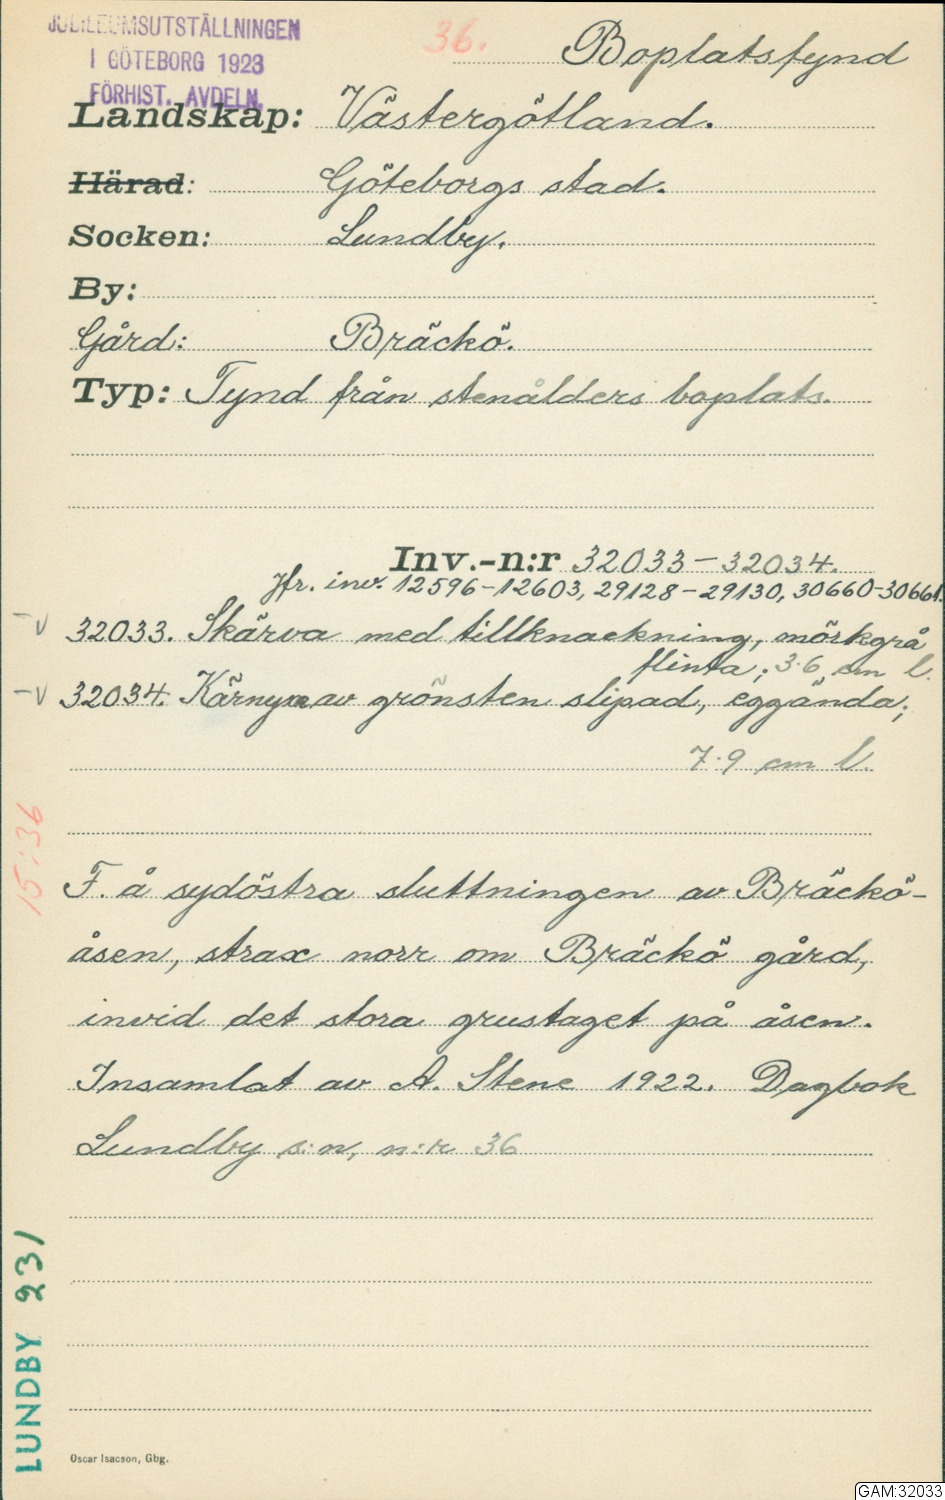 JUBILEUMSUTSTÄLLNINGEN
I GÖTEBORG 1923
FÖRHIST. AVDELN.
36. Boplatsfynd
Landskap: Västergötland.
Härad: Göteborgs stad.
Socken: Lundby.
By:
Gård: Bräckö.
Typ: Fynd från stenålders boplats.
Inv.-n:r 32033-32034.
Jfr. inv. 12596-12603, 29128-29130, 30660-30661.
32033. Skärva med tillknackning, mörkgrå
flinta; 3.6 cm l.
32034. Kärnyxa av grönsten slipad, eggända;
7.9 cm l.
15:36
F. å sydöstra sluttningen av Bräckö-
åsen, strax norr om Bräckö gård,
invid det stora grustaget på åsen.
Insamlat av A. Stene 1922. Dagbok
Lundby s:n, n:r 36
LUNDBY 231
Oscar Isacson, Gbg.
GAM:32033